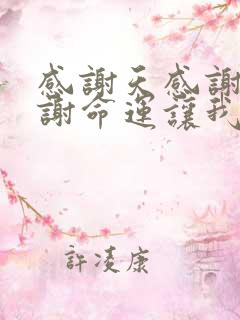 感謝天感謝
謝命運讓我
許凌康